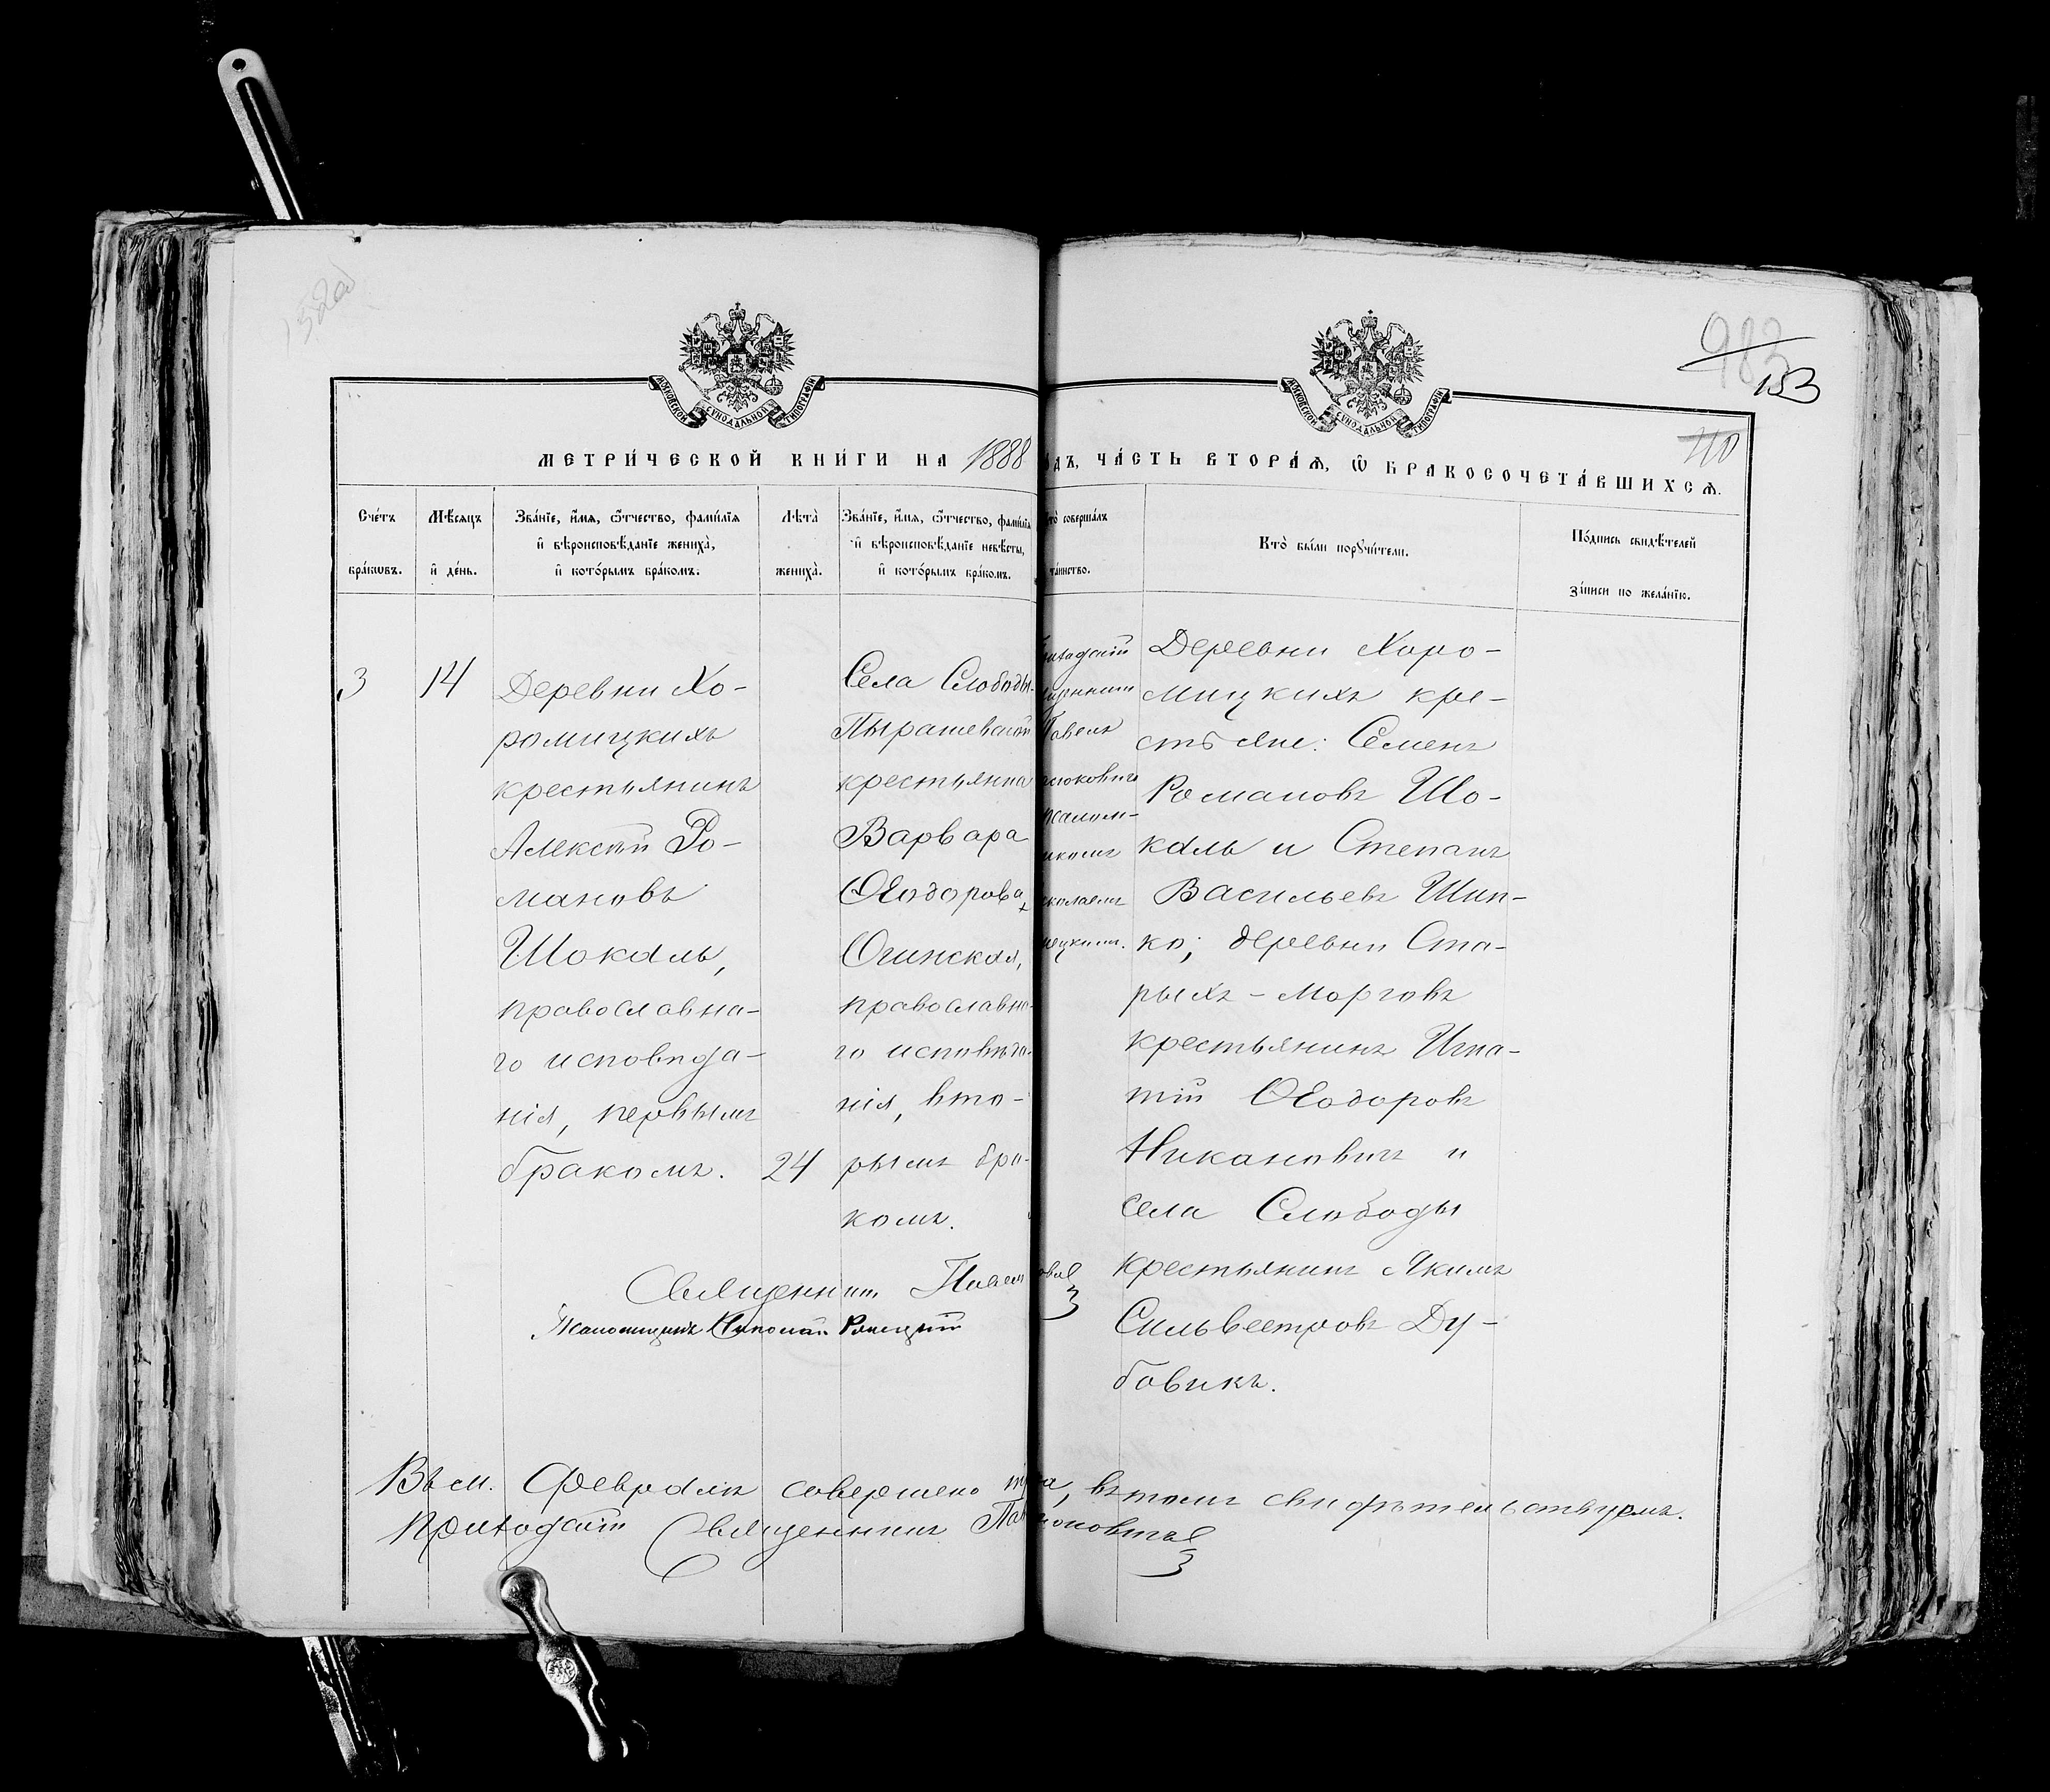 983
153
110
МОСКОВСКОЙ СУНОДАЛЬНОЙ ТИПОГРАФІИ
МОСКОВСКОЙ СУНОДАЛЬНОЙ ТИПОГРАФІИ
МЕТРИ́ЧЕСКОЙ КНИ́ГИ НА 1888
ЧА́СТЬ ВТОРА́Ѧ, Ѽ БРАКОСОЧЕТА́ВШИХСѦ.
Сче́тъ
бра́ковъ.
Мѣ́сяцъ
и҆ де́нь.
Зва́нїе, и҆́мя, ѻ҆́тчество, фами́лїя
и҆ вѣроисповѣ́данїе жениха̀,
и҆ кото́рымъ бра́комъ.
Лѣта̀
жениха̀.
Зва́нїе, и҆́мя, ѻ҆́тчество, фами́лїя
и҆ вѣроисповѣ́данїе невѣ́сты,
и҆ кото́рымъ бра́комъ.
соверша́лъ
та́инство.
Кто̀ бы́ли порꙋчи́тели.
По́дпись свидѣ́телей
за́писи по жела́нїю.
3
14
Деревни Хо-
ромицкихъ
крестьянинъ
Алексѣй Ро-
мановъ
Шокаль,
православна-
го исповѣда-
нія, первымъ
бракомъ.
24
Села Слободы-
Пырашевской
крестьянка
Варвара
Ѳеодорова,
Огинская,
православна-
го исповѣда-
нія, вто-
рымъ бра-
комъ.
Деревни Хоро-
мицкихъ кре-
стьяне: Семенъ
Романовъ Шо-
каль и Степанъ
Васильевъ Шип-
ко; деревни Ста-
рыхъ-Морговъ
крестьянинъ Игна-
тій Ѳеодоровъ
Никановичъ и
села Слободы
крестьянинъ Якимъ
Сильвестровъ Ду-
бовикъ.
Священникъ
Псаломщикъ Николай
Въ м. Февралѣ совершено три, въ томъ свидѣтельствуемъ.
Приходскій Священникъ